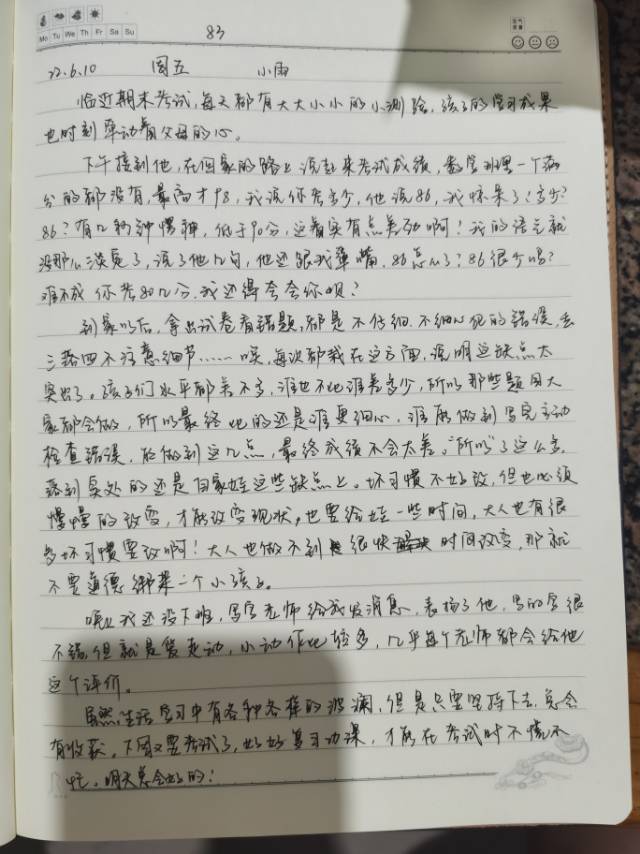 Mo Tu We Th Fr Sa Su
83
22.6.10 周五 小雨
临近期末考试,每天都有大大小小的小测验,孩子的学习成果
也时刻牵动着父母的心。
下午接到他,在回家的路上说起来考试成绩,数学班里一个满
分的都没有,最高才98,我说你考多少,他说86,我惊呆了!多少?
86?有几秒钟愣神,低于90分,这着实有点差劲啊!我的语气就
没那么淡定了,说了他几句,他还跟我犟嘴,86怎么了?86很少吗?
难不成你考80几分,我还得夸夸你呗?
到家以后,拿出试卷看错题,都是不仔细、不细心犯的错误,丢
三落四不注意细节……唉,每次都栽在这方面,说明这缺点太
突出了。孩子们水平都差不多,谁也不比谁差多少,所以那些题目大
家都会做,所以最终比的还是谁更细心,谁能做到写完主动
检查错误,能做到这几点,最终成绩不会太差。"所以"了这么多,
落到实处的还是自家娃这些缺点上。坏习惯不好改,但也必须
慢慢的改变,才能改变现状,也要给娃一些时间,大人也有很
多坏习惯要改啊!大人也做不到很快时间改变,那就
不要道德绑架一个小孩子。
晚上我还没下班,写字老师给我发消息,表扬了他,写的字很
不错,但就是爱走动,小动作比较多,几乎每个老师都会给他
这个评价。
虽然生活学习中有各种各样的波澜,但是只要坚持下去,总会
有收获。下周又要考试了,好好复习功课,才能在考试时不慌不
忙,明天总会好的!